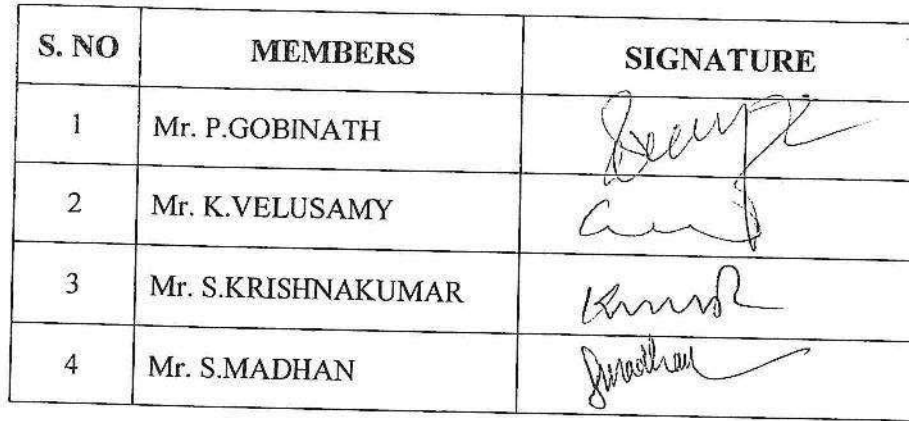 S. NO MEMBERS SIGNATURE
1 Mr. P.GOBINATH
2 Mr. K.VELUSAMY
3 Mr. S.KRISHNAKUMAR
4 Mr. S.MADHAN Smadhan